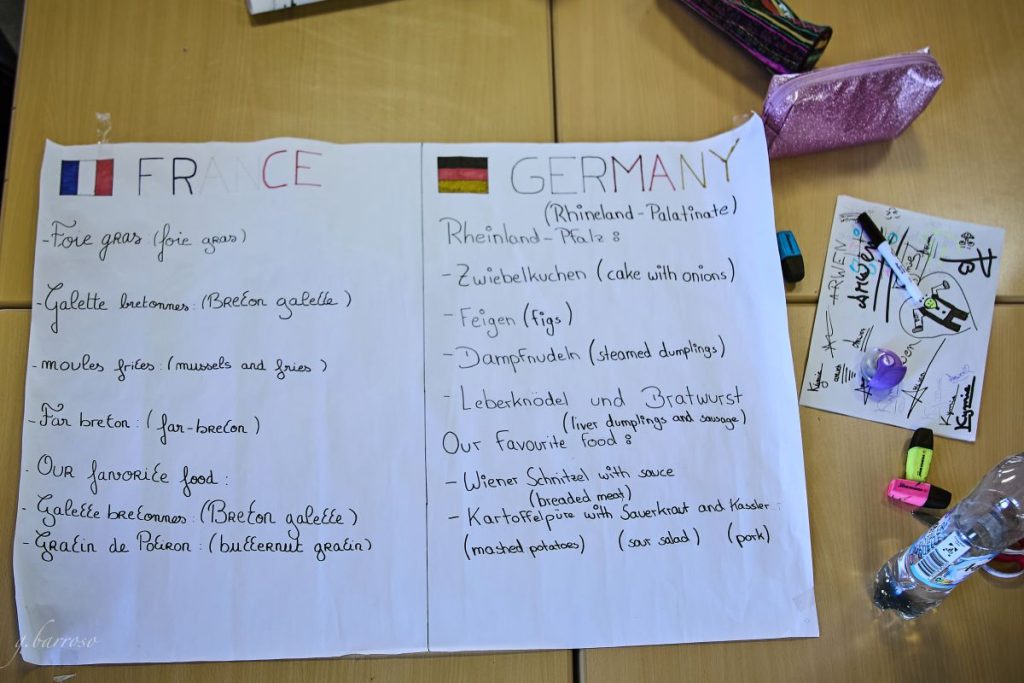 FRANCE
- Foie gras (foie gras)
- Galette bretonnes : (Breton galette)
- moules frites : (mussels and fries)
- Far breton : (far-breton)
- Our favorite food :
- Galette bretonnes : (Breton galette)
- Gratin de Potiron : (butternut gratin)
GERMANY
(Rhineland-Palatinate)
Rheinland-Pfalz :
- Zwiebelkuchen (cake with onions)
- Feigen (figs)
- Dampfnudeln (steamed dumplings)
- Leberknödel und Bratwurst
(liver dumplings and sausage)
Our Favourite Food :
- Wiener Schnitzel with sauce
(breaded meat)
- Kartoffelpüre with Sauerkraut and Kassler :
(mashed potatoes) (sour salad) (pork)
ARWEN
Kyrie
g.barroso